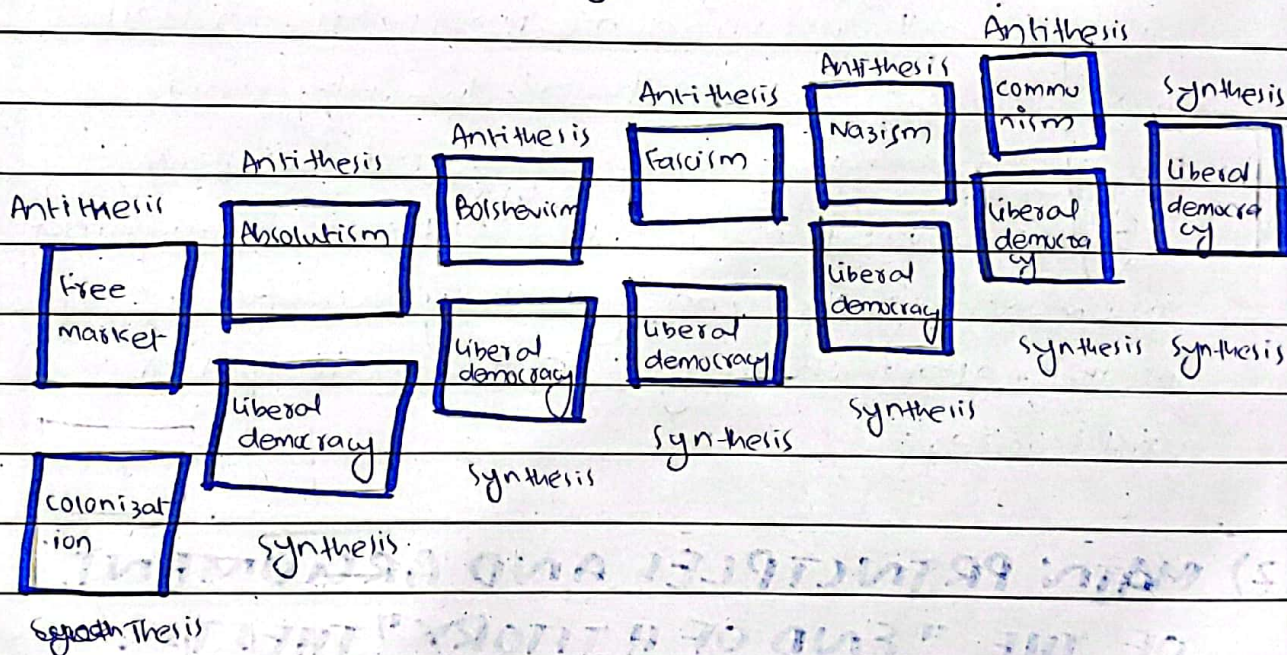 Antithesis
Free
market
colonizat
ion
Thesis
Antithesis
Absolutism
Liberal
democracy
Synthesis.
Antithesis
Bolshevism
Liberal
democracy
Synthesis
Antithesis
Fascism
Liberal
democracy
Synthesis
Antithesis
Nazism
Liberal
democracy
Synthesis
Antithesis
commu
nism
Liberal
democra
cy
Synthesis
Synthesis
Liberal
democra
cy
Synthesis
2) MAIN PRINCIPLES AND
OF THE "END OF HISTORY" THESIS